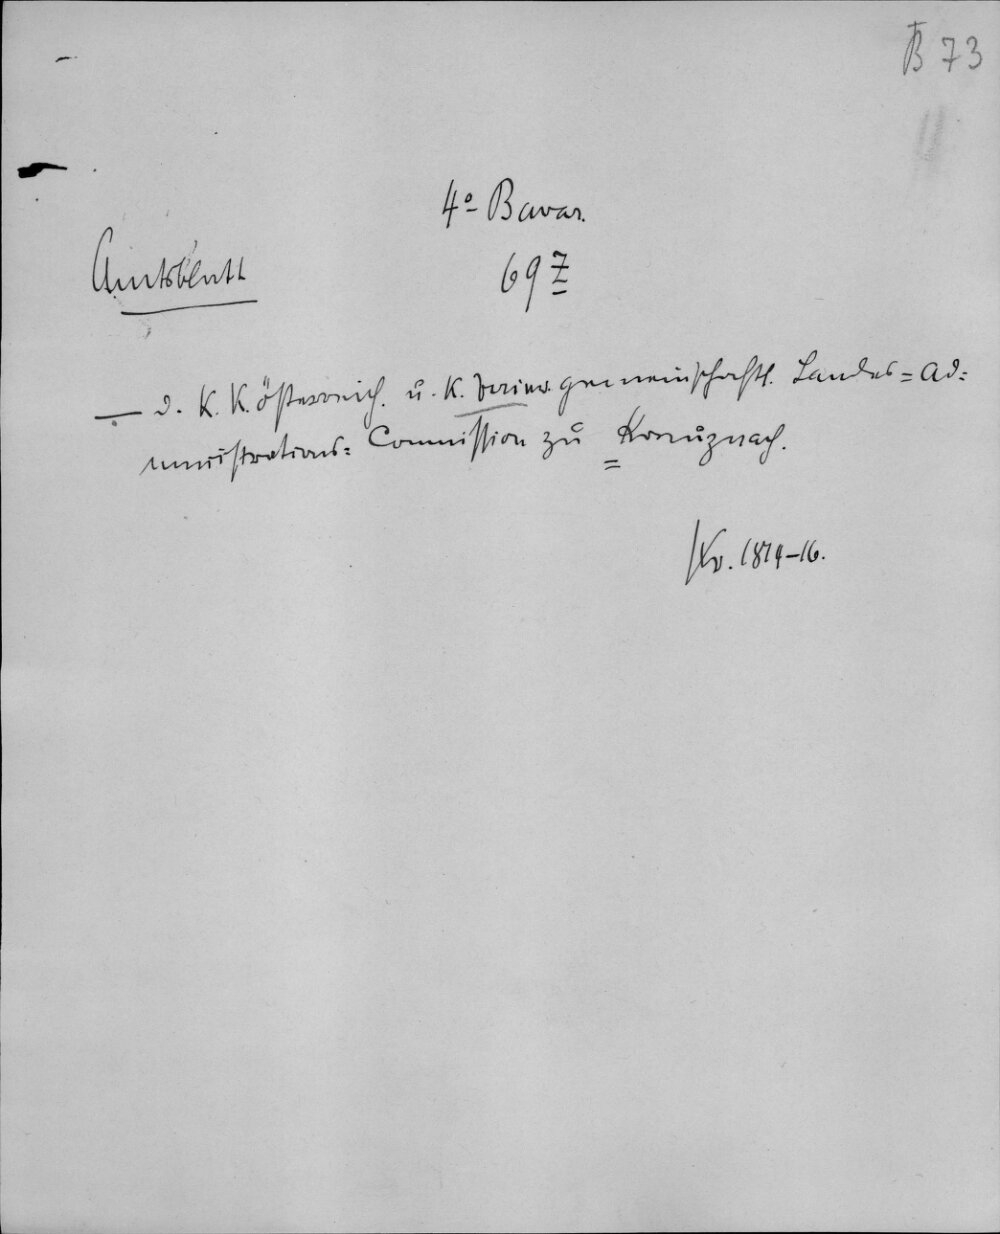 B 73
4° Bavar.
69 z
Amtsblatt
— d. K. K. österreich. u. K. baier. gemeinschaftl. Landes=Ad=
ministrations=Commission zu Kreuznach.
Kr. 1814–16.